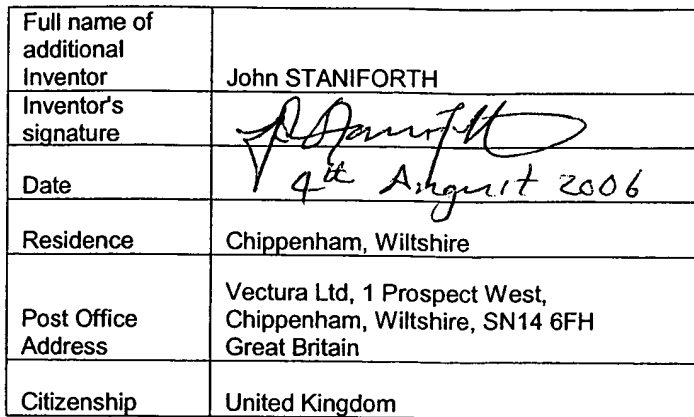 Full name of
additional
Inventor
John STANIFORTH
Inventor's
signature
Date
4th August 2006
Residence
Chippenham, Wiltshire
Post Office
Address
Vectura Ltd, 1 Prospect West,
Chippenham, Wiltshire, SN14 6FH
Great Britain
Citizenship
United Kingdom